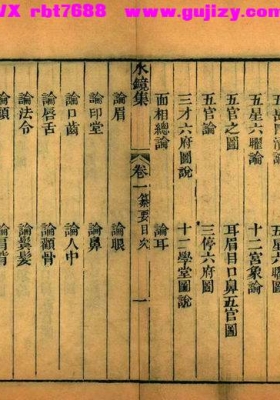 VX rbt7688 w.gujizy.com
五星六曜論 十二宮象論
五官之圖 耳眉目口鼻五官圖
五官論 三停六府圖
三才六府圖說 十二學堂圖說
面相總論 論耳
水鏡集 卷一 纂要目次 一
論眉 論眼
論印堂 論鼻
論口齒 論人中
論唇舌 論顴骨
論法令 論鬚髮
論肩背
www.gujizy.com